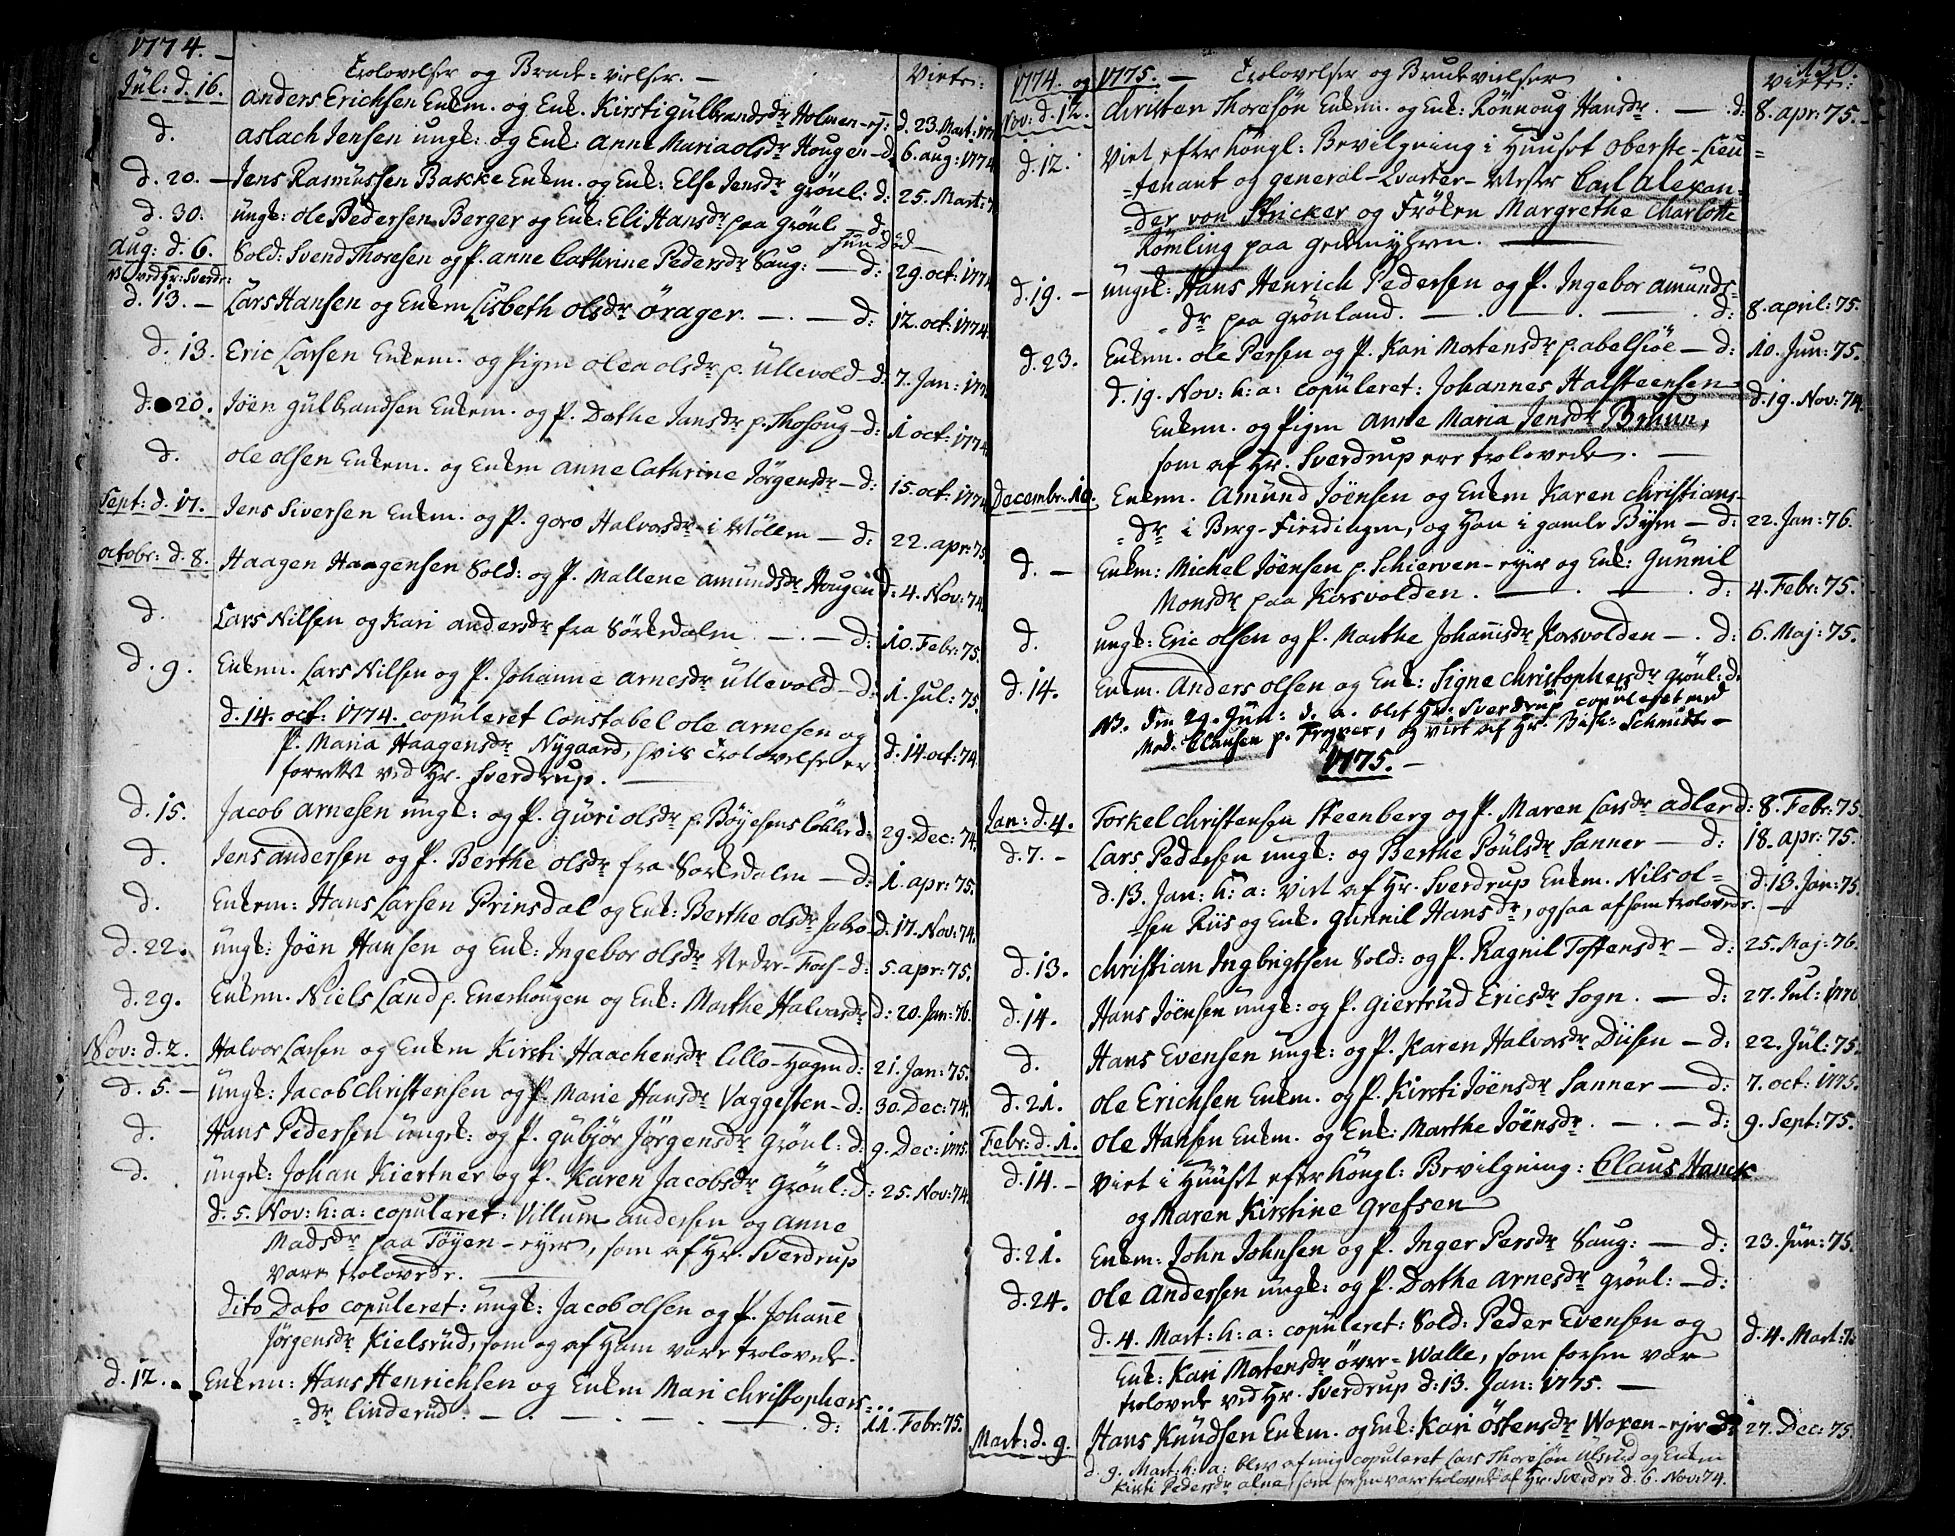 1774. –
Trolovelser og Brude-vielser. – Viete:
Jul: d. 16. Anders Erichsen Enkem. og Enk. Kirsti Gülbrandsdr Holmen-ej: d. 23. Mart: 177
d. Aslach Jensen ungk: og Enk: Anne Maria Olsdr Hougen – d. 6. aug: 1774
d. 20. – Jens Rasmüssen Bakke Enkem. og Enk: Else Jensdr Grönl: d: 25. Mart:
d. 30. ungk: Ole Pedersen Berger og Enk: Eli Hansdr paa Grönl d:
Aug: d. 6. Sold: Svend Thoresen og P. Anne Cathrine Pedersdr Saug: – d: 29. oct: 1774
d. 13. – Lars Hansen og Enkem Lisbeth Olsdr Örager. – . – d: 12. oct: 1774.
d. 13. Eric Larsen Enkem. og Pigen Olea Olsdr p. Ullevold – d: 7. Jan: 177
d. 20. Jöen Gülbrandsen Enkem. og P. Dorthe Jansdr p. Thosoug – d: 1 oct: 1774
d. Ole Olsen Enkem. og Enkem Anne Cathrine Jörgensdr – d: 15. oct: 1774
Sept: d. 17. Jens Siversen Enkem. og P. Goro Halvorsdr i Möllen – d: 22. apr: 75
Octobr: d. 8. Haagen Haagensen Sold: og P. Mallene Amündsdr Hougen d: 4. Nov: 74.
d. Lars Nilsen og Kari Andersdr fra Sörkedalen – . – d: 10. Febr: 75.
d. 9. Enkem. Lars Nilsen og P. Johanne Arnesdr Ullevold – d: 1. Jul: 75.
d. 14. oct: 1774. copuleret Constabel Ole Arnesen og
P. Maria Haagensdr Nygaard, hvis Trolovelse er d. 14. oct: 74.
forrettet ved Hr. Sverdrup.
d. 15. Jacob Arnesen ungk: og P. Guri Olsdr p. Böyesens Lökke d: 29. Dec: 74.
d. Jens Andersen og P. Berthe Olsdr fra Sörkedalen – d: 1. apr: 75.
d. Enkem: Hans Larsen Prinsdal og Enk: Berthe Olsdr Jabo – d. 17. Nov: 74.
d. 22. ungk: Jöen Hansen og Enk: Ingebor Olsdr Nedre-Foss – d: 5. apr: 75.
d. 29. Enkem. Niels Land p. Enerhougen og Enk: Marthe Halvorsdr d: 20. Jan: 76.
Nov: d. 2. Halvor Larsen og Enkem Kirsti Haachensdr Lille-Hagen d: 21. Jan: 75.
d. 5. – ungk: Jacob Christensen og P. Marie Hansdr Vaggesten – d: 30. Dec: 74.
d. Hans Pedersen ungk: og P. Gubjör Jörgensdr Grönl: d: 9. Dec: 1775.
d. ungk: Johan Kiertner og P. Karen Jacobsdr Grönl: d: 25. Nov: 74
d. 5. Nov: h: a: copuleret: Villum Andersen og Anne
Madsdr paa Töyen-eyer, som af Hr. Sverdrup
vare trolovede.
Dito Dato copuleret: ungk: Jacob Olsen og P. Johanne
Jörgensdr Kielsrüd, som og af Ham vare trolovede.
d. 12. Enkem: Hans Henrichsen og Enkem Mari Christophers-
-dr Linderüd. – . – . – . d: 11. Febr: 75.
130.
1774. og 1775. – Trolovelser og Brudevielser Viete:
Nov: d. 12. Christen Thoresön Enkem. og Enk: Rönnoug Hansdr. – d: 8. apr: 75.
d. 12. Viet efter Kongl: Bevilgning i Huuset Oberste-Lieu-
-tenant og General-Qvarter-Mester Carl Alexan-
-der von Stricker og Fröken Margrethe Charlotte
Römling paa Gedemyhren.
d. 19. – ungk: Hans Henrich Pedersen og P. Ingebor Amünds-
-dr paa Grönland. – . – . – . d: 8. april: 75.
d. 23. Enkem. Ole Persen og P. Kari Mortensdr p. Abelsiöe – d: 10. Jun: 75.
d. 19. Nov: h: a: copuleret: Johannes Halsteensen d. 19. Nov: 74.
Enkem. og Pigen Anne Maria Jensdr Brüun,
som af Hr. Sverdrup ere trolovede. –
Decembr. 10. Enkem. Amünd Jöensen og Enkem Karen Christians-
-dr i Berg-Fierdingen, og Han i gamle Byen – d: 22. Jan: 76.
d. – Enkem: Michel Jöensen p. Schierven-eyer og Enk: Gunnil
Monsdr paa Korsvolden. – . – . d: 4. Febr: 75.
d. ungk: Eric Olsen og P. Marthe Johannisdr Korsvolden – . d: 6. Maj: 75.
d. 14. Enkem. Anders Olsen og Enk: Signe Christophersdr Grönl: d:
NB. den 29. Jun: d. a. blef Hr. Sverdrup copuleret med
Mad. Clausen p. Frogner, og viet af Hr. Bisk: Schmidt –
1775. –
Jan: d. 4. Torkel Christensen Steenberg og P. Maren Larsdr Adler d: 8. Febr: 75
d. 7. – Lars Pedersen ungk: og Berthe Poulsdr Sanner – d: 18. apr: 75.
d. 13. Jan: h: a: Viet af Hr. Sverdrup Enkem. Nils Ol- d. 13. Jan: 75
-sen Riis og Enk. Gunnil Hansdr, ogsaa af ham trolovede. –
d. 13. Christian Ingbrigtsen Sold: og P. Ragnil Tostensdr – d: 25. Maj: 76.
d. 14. Hans Jöensen ungk: og P. Giertrüd Ericsdr Sogn. – d: 27. Jul: 177
d. Hans Evensen ungk: og P. Karen Halvorsdr Diisen – d: 22. Jul: 75.
d. 21. Ole Erichsen Enkem. og P. Kirsti Jöensdr Sanner – d: 7. oct: 1775.
Febr: d. 1. Ole Hansen Enkem. og Enk: Marthe Jöensdr. – . – d: 9. Sept: 75.
d. 14. – Viet i Huuset efter Kongl: Bevilgning: Claus Hanck
og Maren Kirstine Grefsen
d. 21. Enkem: John Johnsen og P. Inger Persdr Saug: – d: 23. Jun: 75.
d. 24. Ole Andersen ungk: og P. Dorthe Arnesdr Grönl: – d:
d. 4. Mart: h: a: copuleret: Sold: Peder Evensen og d. 4. Mart: 7
Enk: Kari Mortensdr Övre-Walle, som forhen var
trolovede ved Hr. Sverdrup d: 13. Jan: 1775. –
Mart: d. 9. Hans Knüdsen Enkem. og Enk: Kari Östensdr Woxen-ejer d: 27. Dec: 75.
d. 9. Mart: h: a: blev af mig copuleret Lars Thoresön Ulsrud og Enkem
Kirsti Pedersdr Alna, som forhen vare trolovede af Hr. Sverdr: d. 6. Nov: 74.